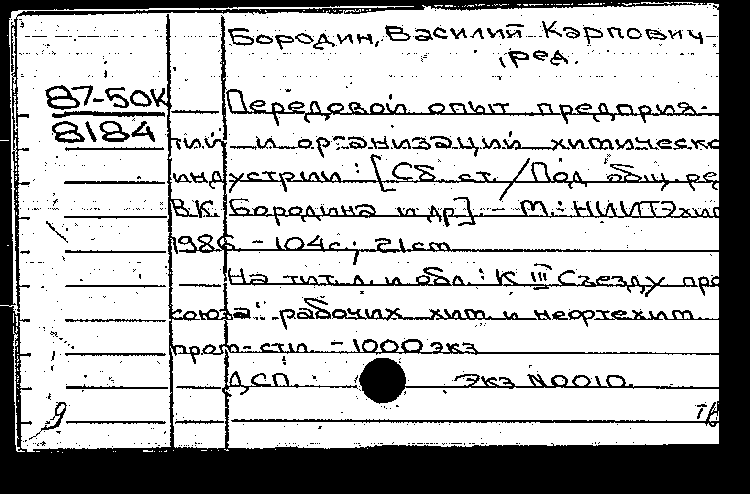 Бородин, Василий Карпович
, ред.
87-50К
8184
Передовой опыт предприя-
тий и организаций химическо
индустрии: [Сб. ст. / Под общ. ре
В.К. Бородина и др]. - М.: НИИТЭхим
1986 - 104с; 21cm
На тит. л. и обл.: К III Съезду про
союза: рабочих хим. и нефтехим.
пром-сти. - 1000 экз
ДСП. : экз N0010.